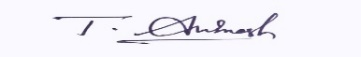 T. Avinash